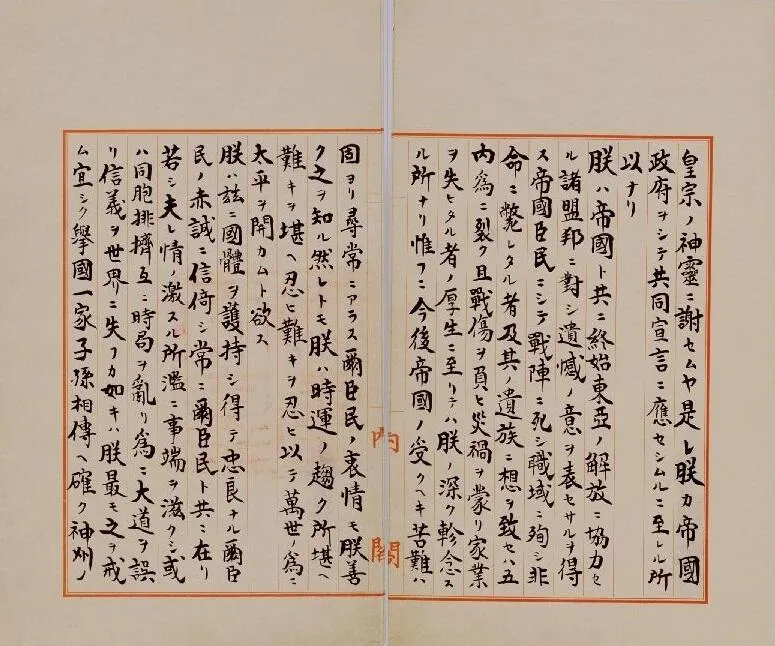 皇宗ノ神靈ニ謝セムヤ是レ朕カ帝國
政府ヲシテ共同宣言ニ應セシムルニ至レル所
以ナリ
朕ハ帝國ト共ニ終始東亞ノ解放ニ協力セ
ル諸盟邦ニ對シ遺憾ノ意ヲ表セサルヲ得
ス帝國臣民ニシテ戰陣ニ死シ職域ニ殉シ非
命ニ斃レタル者及其ノ遺族ニ想ヲ致セハ五
內爲ニ裂ク且戰傷ヲ負ヒ災禍ヲ蒙リ家業
ヲ失ヒタル者ノ厚生ニ至リテハ朕ノ深ク軫念ス
ル所ナリ惟フニ今後帝國ノ受クヘキ苦難ハ
固ヨリ尋常ニアラス爾臣民ノ衷情モ朕善
ク之ヲ知ル然レトモ朕ハ時運ノ趨ク所堪ヘ
難キヲ堪ヘ忍ヒ難キヲ忍ヒ以テ萬世ノ爲ニ
太平ヲ開カムト欲ス
朕ハ玆ニ國體ヲ護持シ得テ忠良ナル爾臣
民ノ赤誠ニ信倚シ常ニ爾臣民ト共ニ在リ
若シ夫レ情ノ激スル所濫ニ事端ヲ滋クシ或
ハ同胞排擠互ニ時局ヲ亂リ爲ニ大道ヲ誤
リ信義ヲ世界ニ失フカ如キハ朕最モ之ヲ戒
ム宜シク擧國一家子孫相傳ヘ確ク神州ノ
內閣